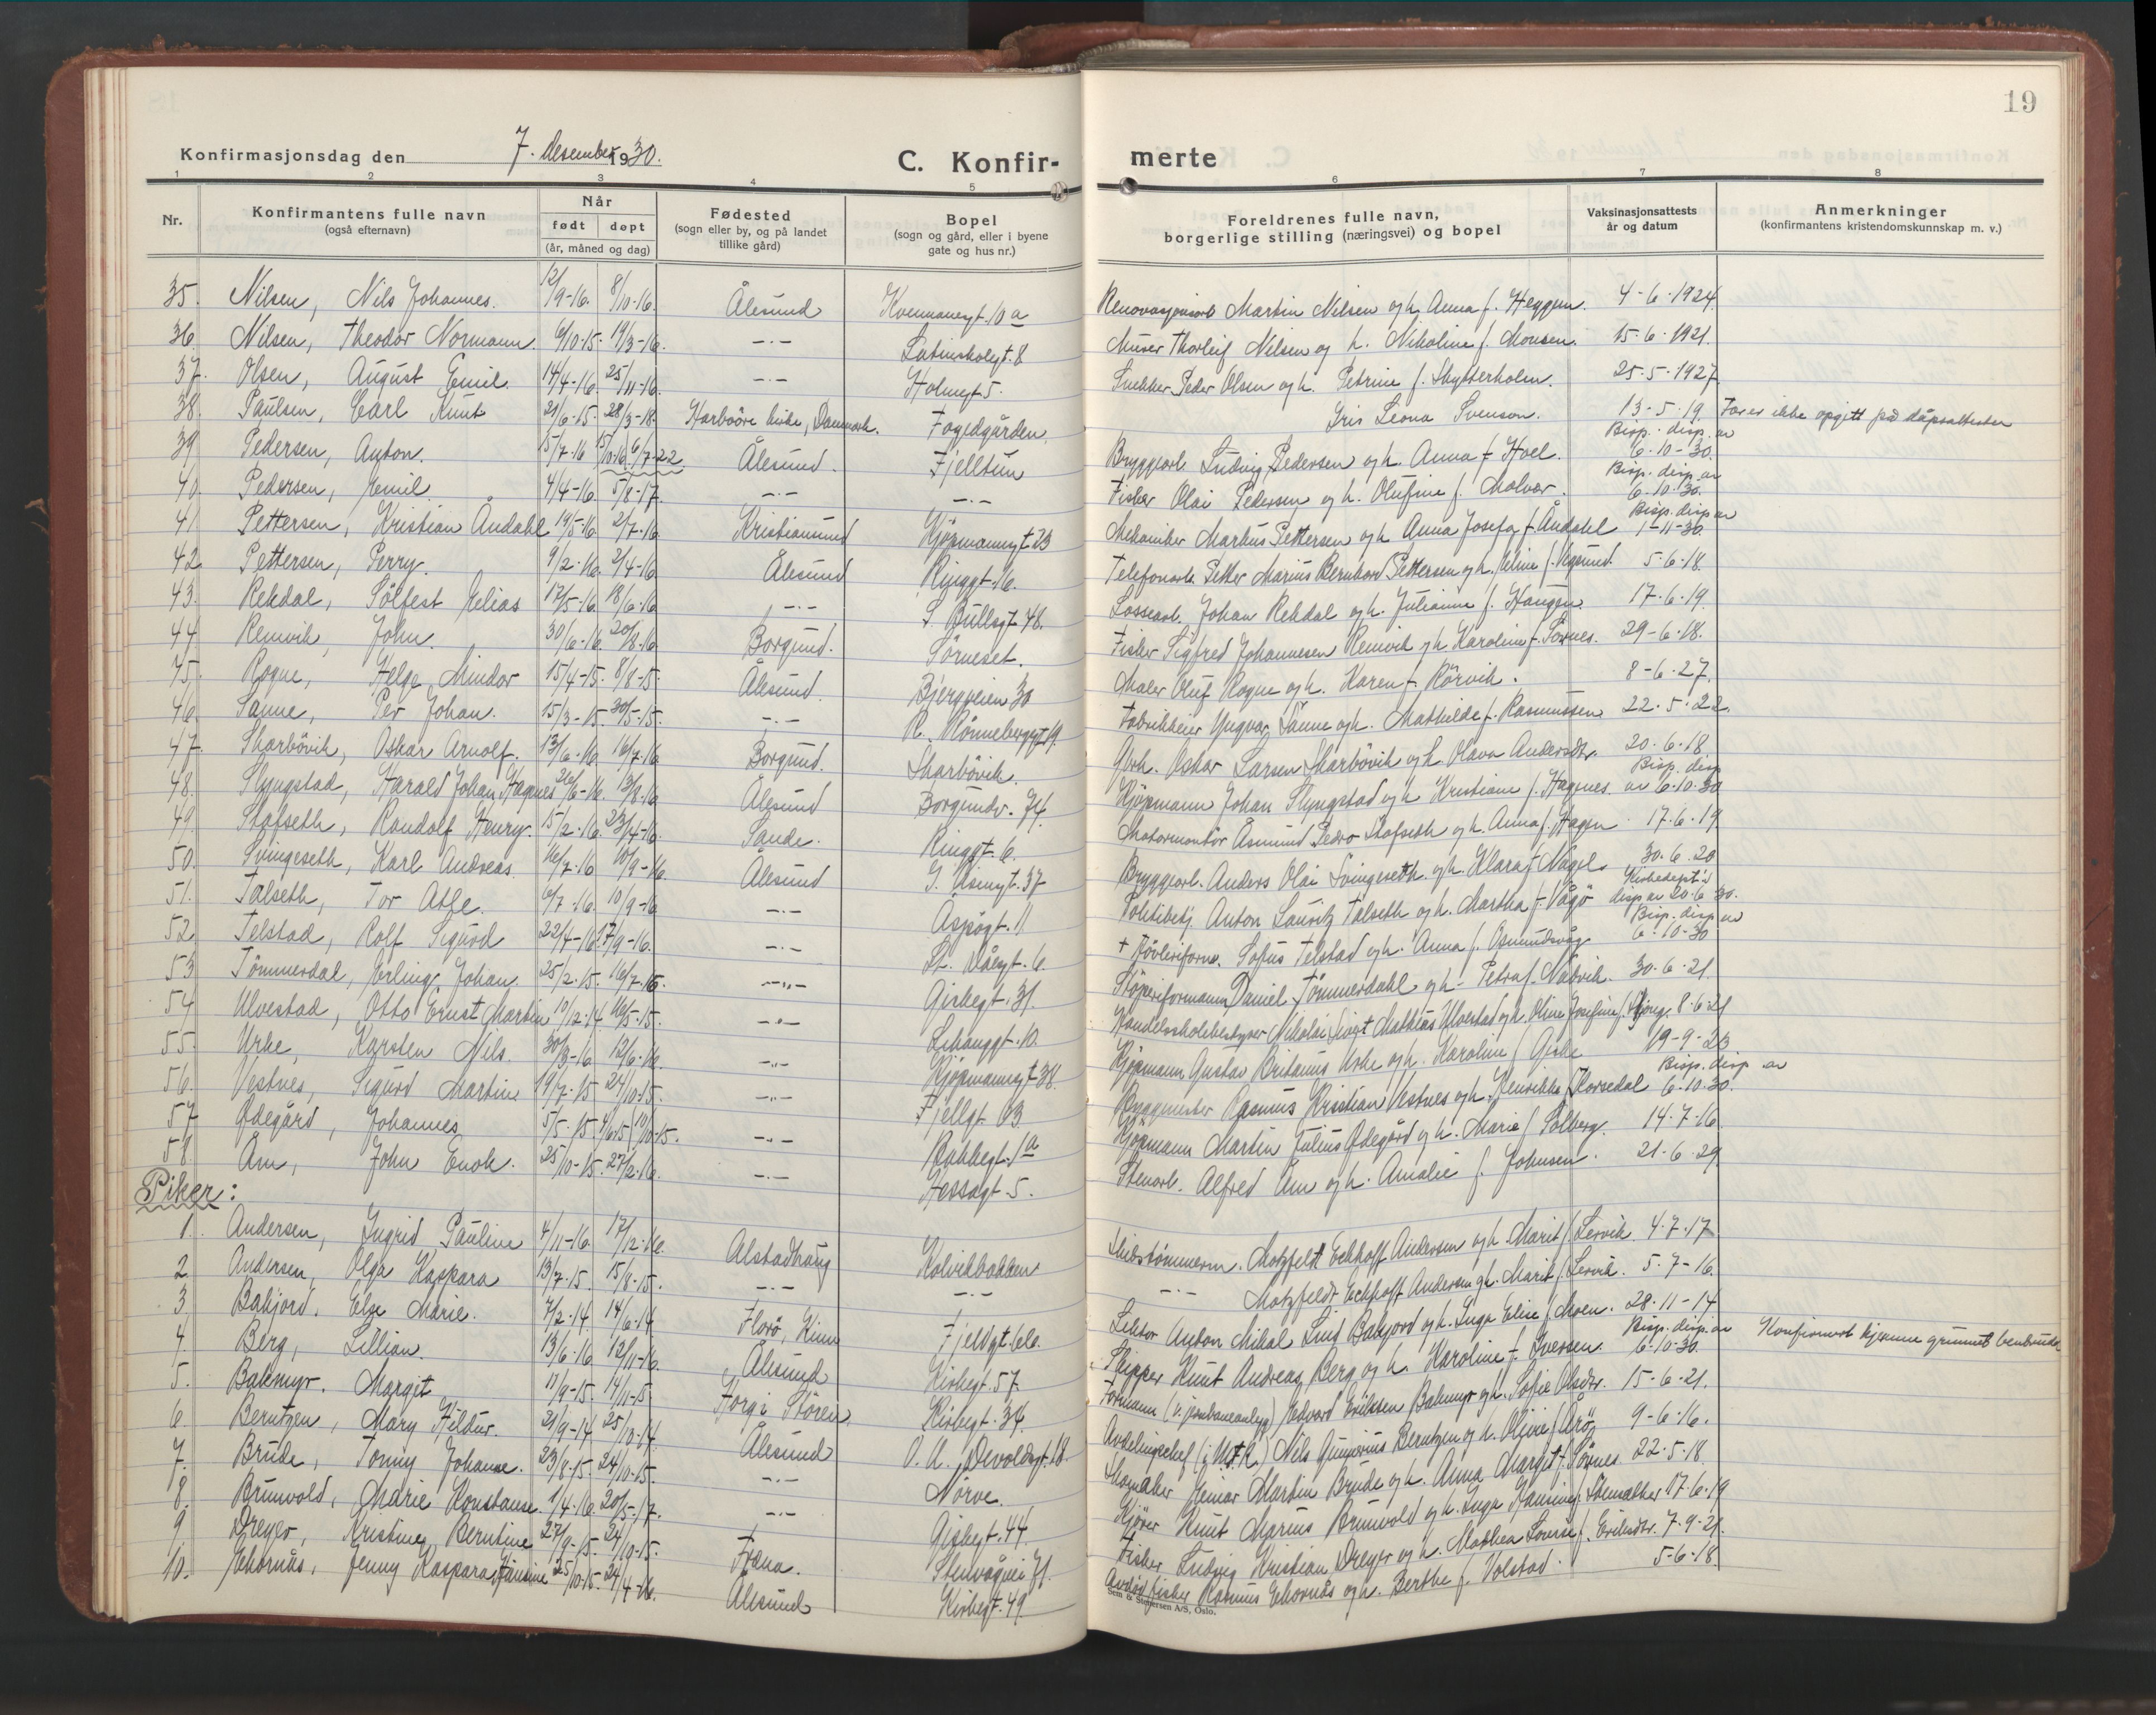 19
Konfirmasjonsdag den 7. desember 1930.
C. Konfir-
merte
1 2 3 4 5 6 7 8
Nr.
Konfirmantens fulle navn
(også efternavn)
Når
født døpt
(år, måned og dag)
Fødested
(sogn eller by, og på landet
tillike gård)
Bopel
(sogn og gård, eller i byene
gate og hus nr.)
Foreldrenes fulle navn,
borgerlige stilling (næringsvei) og bopel
Vaksinasjonsattests
år og datum
Anmerkninger
(konfirmantens kristendomskunnskap m. v.)
35. Nilsen, Nils Johannes. 12/9-16. 8/10-16. Ålesund 10 a Renovasjonsarb Martin Nilsen og h. Anna f. Heggem. 4-6-1924.
36. Nilsen, Theodor Normann. 6/10-15. 19/3-16. -.- Latinskolegt. 8 Murer Thorleif Nilsen og h. Nikoline f. Monsen. 15-6-1921.
37. Olsen, August Emil. 14/4-16. 25/11-16. -.- Holmegt 5. Snekker Peder Olsen og h. Petrine f. Skytterholm. 25-5-1927.
38. Paulsen, Carl Knut 21/6-15. 28/3-18. Harboöre kirke, Danmark. Fogedgården. Iris Leona Svenson. 13-5-19. Far er ikke opgitt på dåpsattesten
39 Pedersen, Anton. 15/7-16 15/10-16 6/7-22. Ålesund. Fjelltun Bryggearb. Ludvig Pedersen og h. Anna f. Hoel. Bisp. disp. av 6-10-30.
40. Pedersen, Emil. 4/4-16. 5/8-17. -.- -.- Fisker Olai Pedersen og h. Olufine f. Malvær. Bisp. disp. av 6-10-30.
41. Pettersen, Kristian Åndahl 19/5-16. 2/7-16. Kristiansund Kjøpmannsgt 23 Mekaniker Markus Pettersen og h. Anna Josefa f. Åndahl Bisp. disp av 1-11-30.
42. Pettersen, Perry. 9/2-16. 2/4-16. Ålesund Ringgt. 16. Telefonarb. Petter Marius Bernhard Pettersen og h. Eline f. Vegsund. 5-6-18.
43. Rekdal, Sölfest Elias 17/5-16. 18/6-16 -.- S Bullsgt. 48. Lossearb. Johan Rekdal og h. Julianne f. Haugen. 17-6-19.
44. Remvik, John. 30/6-16. 20/8-16 Borgund. Sörneset. Fisker Sigfred Johannesen Remvik og h. Karoline f. Sørnes. 29-6-18.
45. Rogne, Helge Mindor 15/4-15. 8/8-15. Ålesund. Bjergveien 30 Maler Oluf Rogne og h. Karen f. Rörvik. 8-6-27.
46. Sanne, Per Johan. 15/3-15. 30/5-15. -.- R. Rönnebergsgt 19. Fabrikkeier Yngvar Sanne og h. Mathilde f. Rasmussen. 22-5-22.
47. Skarbövik, Oskar Arnolf. 13/6-16. 16/7-16. Borgund. Skarbövik. Grh. Oskar Larsen Skarbövik og h. Olava Andersdtr. 20-6-18.
48. Slyngstad, Harald Johan Hagenes 26/6-16. 13/8-16 Ålesund Borgundv. 74. Kjøpmann Johan Slyngstad og h. Kristiane f. Hagenes. Bisp. disp av 6-10-30
49. Stafseth, Randolf Henry. 15/2-16. 23/4-16. Sande. Ringgt. 6. Motormontör Åsmund Pedro Stafseth og h. Anna f. Hagen. 17-6-19.
50. Svingeseth, Karl Andreas. 16/7-16 10/9-16. Ålesund 37 Bryggearb. Anders Olai Svingeseth og h. Klara f. Nagel 30-6-20
51. Talseth, Tor Atle. 6/7-16. 10/9-16 -.- Aspøgt. 11. Politibetj. Anton Lauritz Talseth og h. Martha f. Vågö Kirkedept's disp av 20-6-30.
52. Telstad, Rolf Sigurd 22/4-16. 17/9-16. -.- St. Olavsgt. 6. + Høvleriform. Sofus Telstad og h. Anna f. Osmundsvåg. Bisp. disp av 6-10-30
53. Tömmerdal, Erling Johan. 25/2-15. 16/7-15. -.- Girkegt. 31. Støperiformann Daniel Tömmerdahl og h. Petra f. Nakvik. 30-6-21.
54. Ulvestad, Otto Ernst Martin 10/2-14. 16/5-15. -.- Lihauggt. 10. Handelsskolebestyrer Nikolai Sivert Mathias Ulvestad og h. Oline Josefine f. Ljöng. 8-6-21
55. Urke, Karsten Nils. 30/3-16 12/6-16. -.- Kjøpmannsgt 38. Kjøpmann Gustav Britanus Urke og h. Karoline f. Giske 19-9-23
56. Vestnes, Sigurd Martin 19/7-15 24/10-15. -.- Fjellgt 63. Byggmester Rasmus Kristian Vestnes og h. Henrikke f. Korsedal Bisp. disp av 6-10-30.
57. Ødegård, Johannes 5/5-15. 4/6-15 10/10-15. -.- Bakkegt. 1a Kjøpmann Martin Julius Ødegård og h. Marie f. Solberg. 14-7-16.
58. Åm, John Enok. 25/10-15. 27/2-16. -.- Hessagt. 5. Stenarb. Alfred Åm og h. Amalie f. Johnsen. 21-6-29.
Piker:
1. Andersen, Ingrid Pauline 4/11-16. 17/12-16. Alstadhaug Kolvikbakken Skibstømmerm. Motzfeldt Eckhoff Andersen og h. Marit f. Lervik 4-7-17
2. Andersen, Olga Kaspara 13/7-15. 15/8-15. -.- -.- -.- Motzfeldt Eckhoff Andersen og h. Marit f. Lervik. 5-7-16.
3. Bakjord, Else Marie. 7/2-14 14/6-14 Florø, Kinn Fjeldgt. 6b. Lektor Anton Mikal Lind Bakjord og h. Inga Elise f. Moen. 28-11-14
4. Berg, Lillian. 13/6-16 12/11-16. Ålesund Kirkegt. 57. Skipper Knut Andreas Berg og h. Karoline f. Iversen. Bisp. disp. av 6-10-30.
5. Bakmyr. Margit 11/9-15. 14/11-15 Horg i Stören Kirkegt. 34. Formann (v. jernbaneanlegg) Edvard Eriksen Bakmyr og h. Sofie Olsdtr. 15-6-21.
6. Berntzen, Mary Hildur. 21/9-14 25/10-14. Ålesund O. A. Devoldsgt. 18. Avdelingschef Nils Berntzen og h. Olivie f. Arö. 9-6-16.
7. Brude, Tonny Johanne. 23/8-15. 24/10-15. -.- Nørve. Skomaker Einar Martin Brude og h. Anna Margit f. Sørnes. 22-5-18.
8. Brunvold, Marie Konstanse. 1/4-16. 20/5-17. -.- Girkegt. 44. Kjører Knut Marius Brunvold og h. Inga Hansine f. Skensaker 17-6-19
9. Dreyer, Kristine Berntine 27/9-15. 24/10-15. Fræna. Stenvågvei 71. Fisker Ludvig Kristian Dreyer og h. Mathea Lovise f. Eriksdtr. 7-9-21.
10. Ekornås, Jenny Kaspara Hansine 25/10-15. 24/4-16. Ålesund Kirkegt. 49. Avdød fisker Rasmus Ekornås og h. Berthe f. Volstad. 5-6-18.
Sem & Stenersen A/S, Oslo.